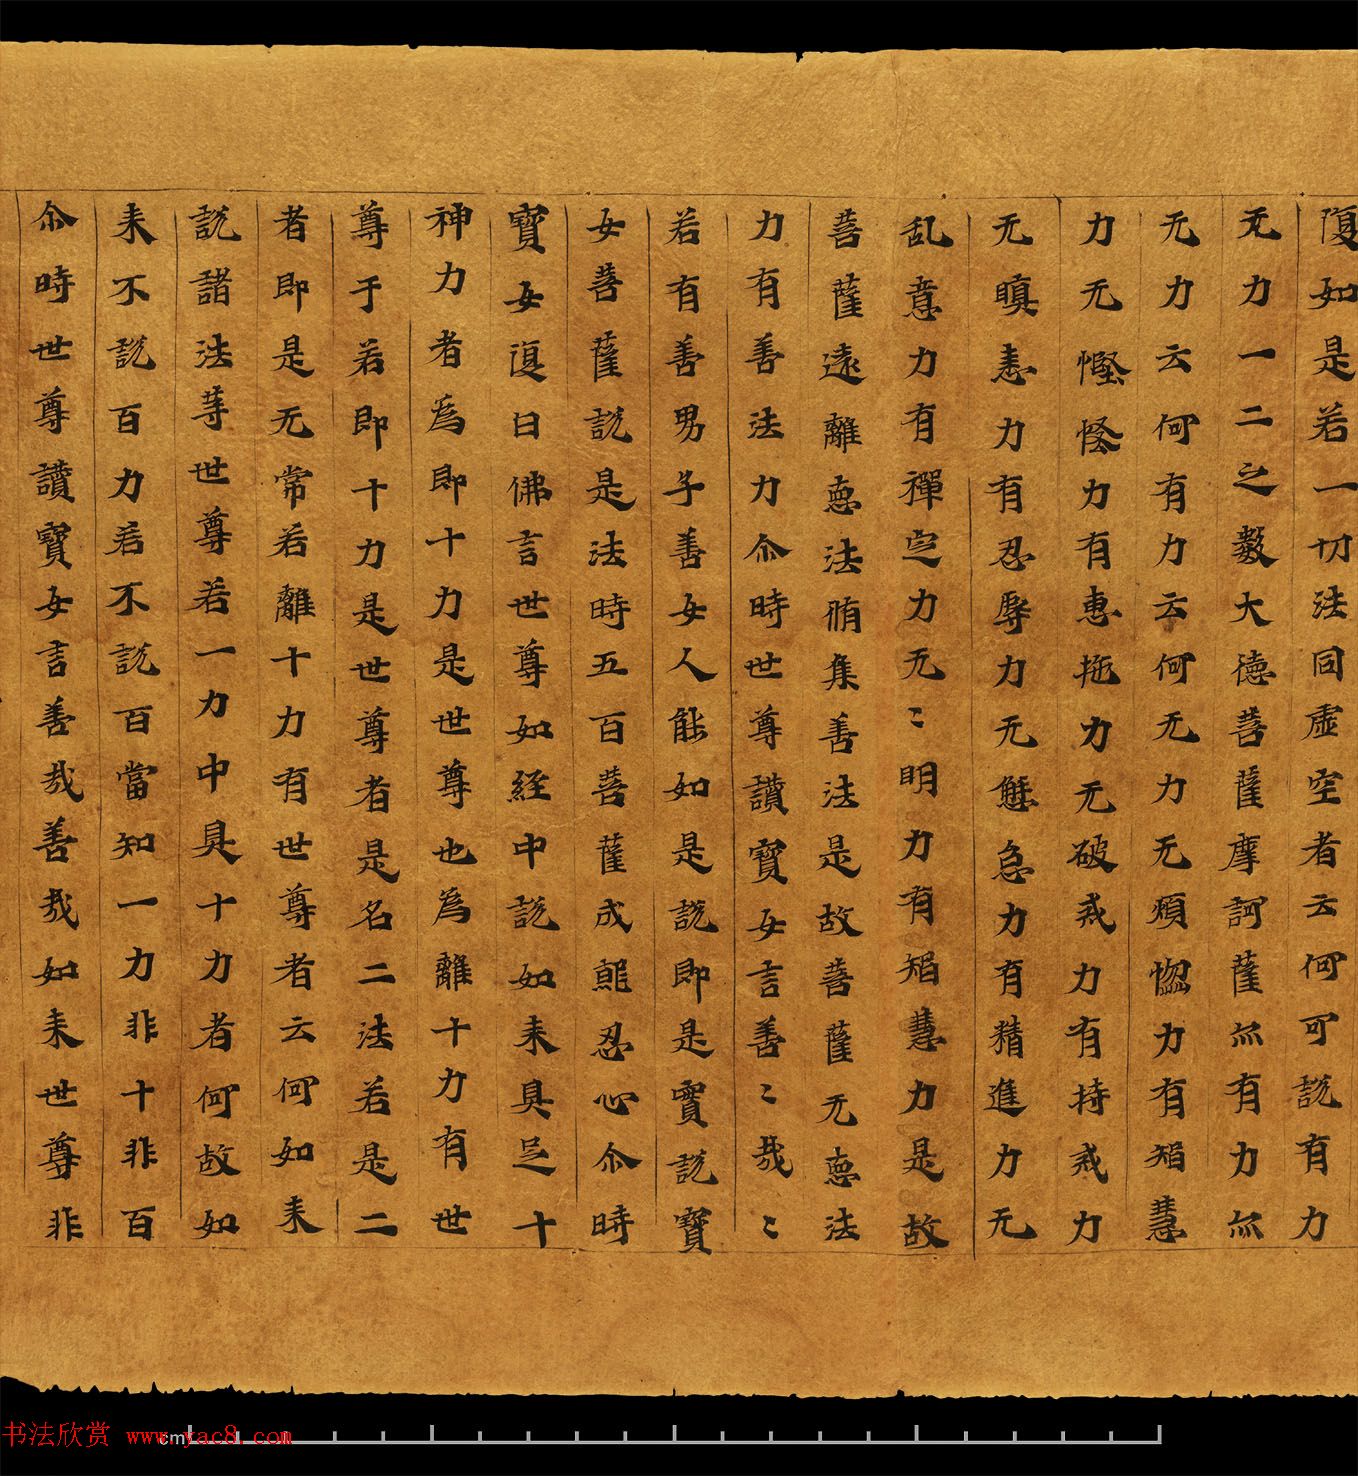 復如是若一切法同虛空者云何可說有力
无力一二之數大德菩薩摩訶薩亦有力亦
无力云何有力云何无力无煩惱力有智慧
力无慳悋力有惠施力无破戒力有持戒力
无瞋恚力有忍辱力无懈怠力有精進力无
乱意力有禪定力无〻明力有智慧力是故
菩薩遠離惡法脩集善法是故菩薩无惡法
力有善法力尒時世尊讃寶女言善〻哉〻
若有善男子善女人能如是說即是實說寶
女菩薩說是法時五百菩薩成就忍心尒時
寶女復曰佛言世尊如經中說如来具足十
神力者為即十力是世尊也為離十力有世
尊于若即十力是世尊者是名二法若是二
者即是无常若離十力有世尊者云何如来
說諸法等世尊若一力中具十力者何故如
来不說百力若不說百當知一力非十非百
尒時世尊讃寶女言善哉善哉如来世尊非
书法欣赏 www.yac8.com
cm